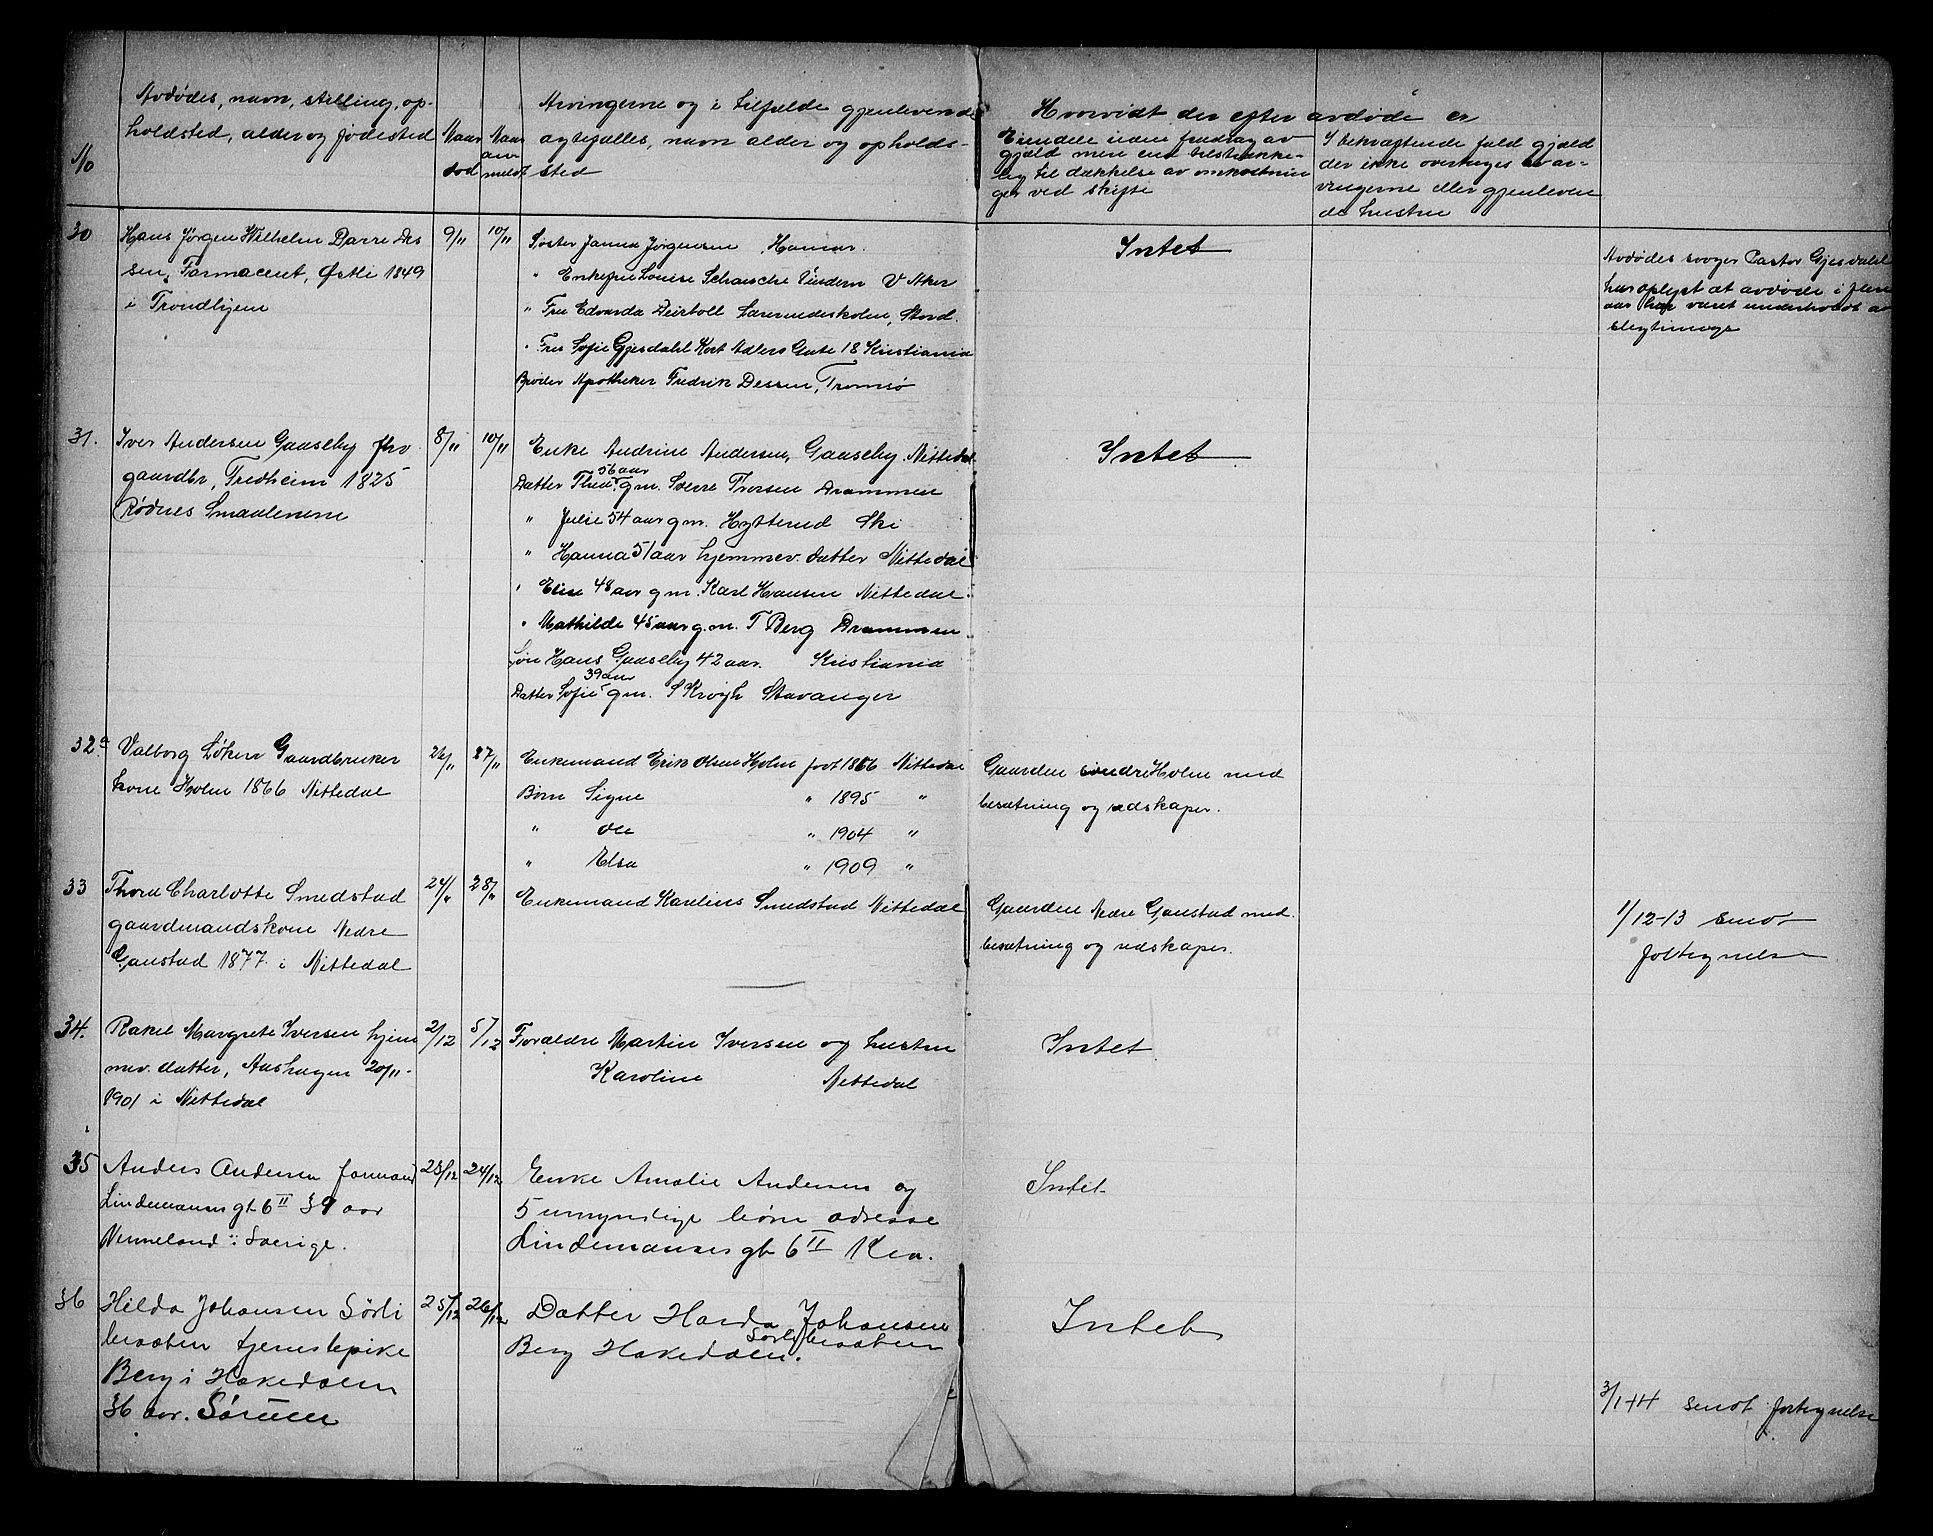 Avdødes, navn, stilling, op-
holdsted, alder og fødested
No
Naar
død
Naar
an-
meldt
Arvingerne og i tilfælde gjenlevende
ægtefælles, navn alder og opholds-
sted
Hvorvidt der efter avdøde er
Eiendele uden fradrag av
gjæld mere end tilstrække-
lig til dækkelse av omkostnin
ger ved skifte
I bekræftende fald gjæld
der ikke overtages av ar-
vingerne eller gjenleven
de hustru
30
Hans Jørgen Wilhelm Darre Des
sen, Farmaceut, Østli 1849
i Trondhjem
9/11
10/11
Søster Janna Jørgensen Hamar.
" Enkefru Louise Schanche Vindern V Aker
" Fru Edvarda Deinboll Lærerindeskolen, Stord.
" Fru Sofie Gjesdahl Kort Adlers Gate 18 Kristiania
Broder Apotheker Fredrik Dessen, Tromsø
Intet
Avdødes svoger Pastor Gjesdahl
har oplyst at avdøde i flere
aar har været underholdt av
slegtninge
31.
Iver Andersen Gaaseby fhv
gaardbr, Fredheim 1825
Rødnes Smaalenene
8/11
10/11
Enke Andrine Andersen, Gaaseby. Nittedal
56 aar
Datter Thea g m. Sverre Thorsen Drammen
" Julie 54 aar g m. Hytterud Ski
" Hanna 51 aar hjemmev. datter Nittedal
" Elise 48 aar g m. Karl Hansen Nittedal.
" Mathilde 45 aar g. m. T Berg Drammen.
Søn Hans Gaaseby 42 aar. Kristiania
39 aar
Datter Sofie g m. S Krogh Stavanger
Intet
32a
Valborg Løken Gaardbruker
kone Holm 1866 Nittedal
26/11
27/11
Enkemand Erik Olsen Holm født 1866 Nittedal
Børn Signe " 1895 "
" Ole " 1904 "
" Elsa " 1909 "
Gaarden søndre Holm med
besætning og redskaper.
33
Thora Charlotte Smedstad
gaardmandskone Nedre
Gaustad 1877 i Nittedal
24/11
28/11
Enkemand Karelius Smedstad Nittedal
Gaarden Nedre Gaustad med
besætning og redskaper.
1/12-13 imot
foltegnelse
34.
Rakel Margrete Iversen hjem
mev. datter, Aashagen 20/11-
1901 i Nittedal
2/12
5/12
Forældre Martin Iversen og hustru
Karoline Nittedal
Intet
35
Anders Andersen formand
Lindemansgt 6 II 39 aar
Vermeland i Sverige.
23/12
24/12
Enke Amalie Andersen og
5 umyndige børn adresse
Lindemansgt 6 II Kra.
Intet
36
Hilda Johansen Sørli
braaten tjenestepike
Berg i Hakedalen
36 aar. Sørum
25/12
26/12
Datter Harda Johansen
Sørlibraaten
Berg Hakedalen.
Intet
3/1-14 imot fortegnelse